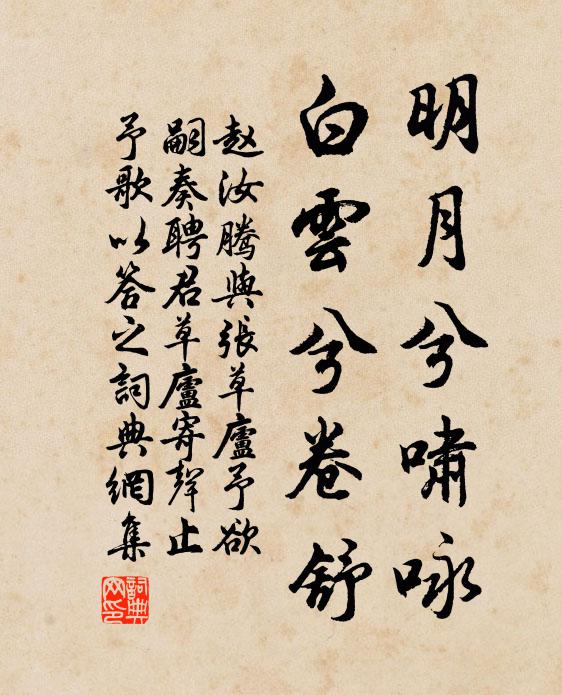 明月兮啸咏
白雲兮卷舒
赵汝腾與張草廬予欲
嗣奏聘君草廬寄聲止
予歌以答之詞典網集
詞典网印